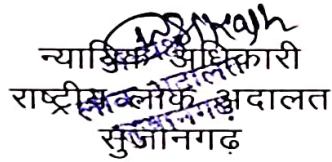 न्यायिक अधिकारी
राष्ट्रीय लोक अदालत
सुजानगढ़